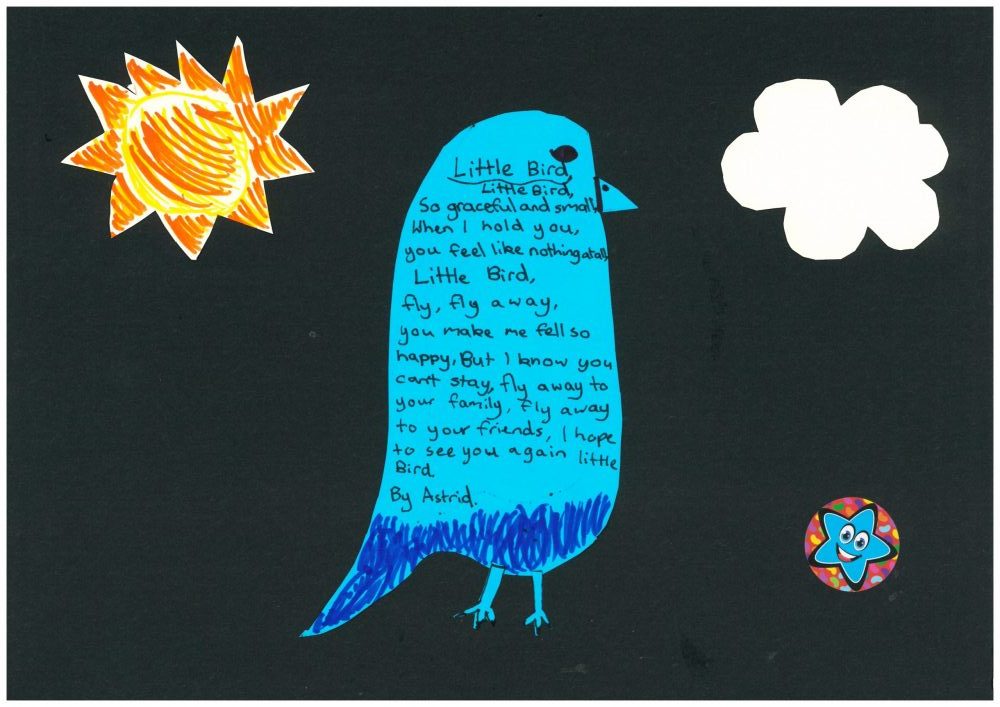 Little Bird,
Little Bird,
So graceful and small,
When I hold you,
you feel like nothing at all,
Little Bird,
fly, fly away,
you make me fell so
happy, But I know you
can't stay, fly away to
your family, fly away
to your friends, I hope
to see you again little
Bird.
By Astrid.